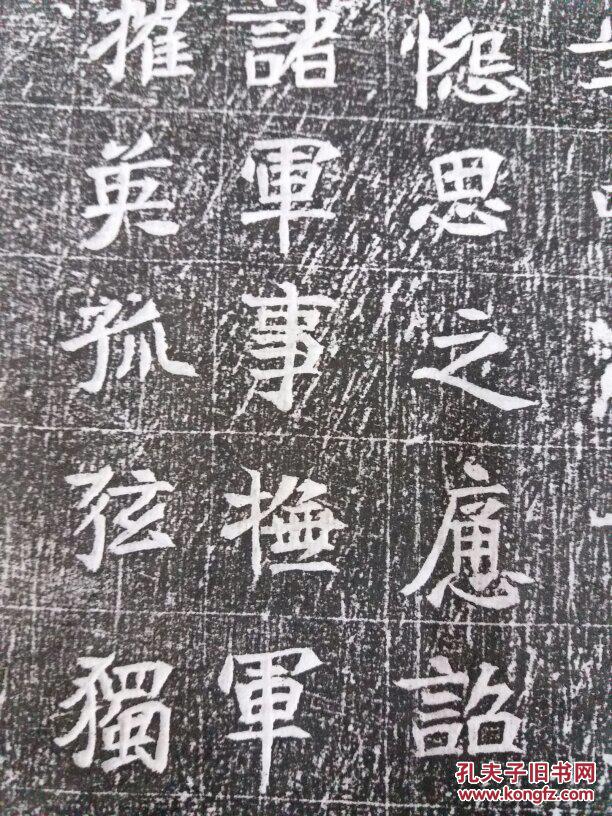 思之應詔
諸軍事撫軍
摧英孤弦獨
孔夫子旧书网
www.kongfz.com